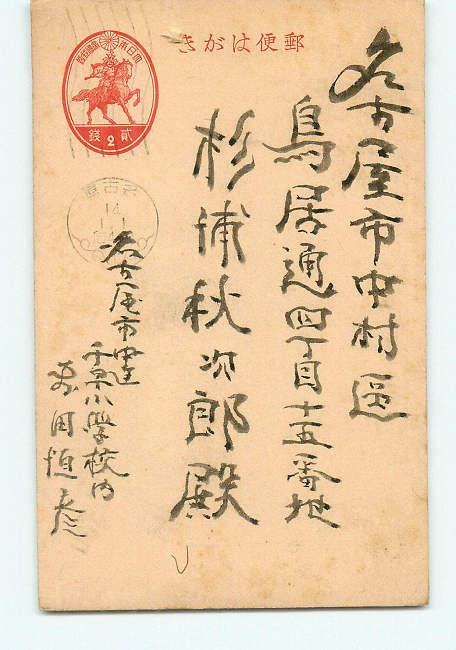 郵便はがき
大日本帝國郵便
貳銭
2
名古屋
14
名古屋市中村區
鳥居通四丁目十五番地
杉浦秋次郎殿
名古屋市中区
千早小学校内
恒彦